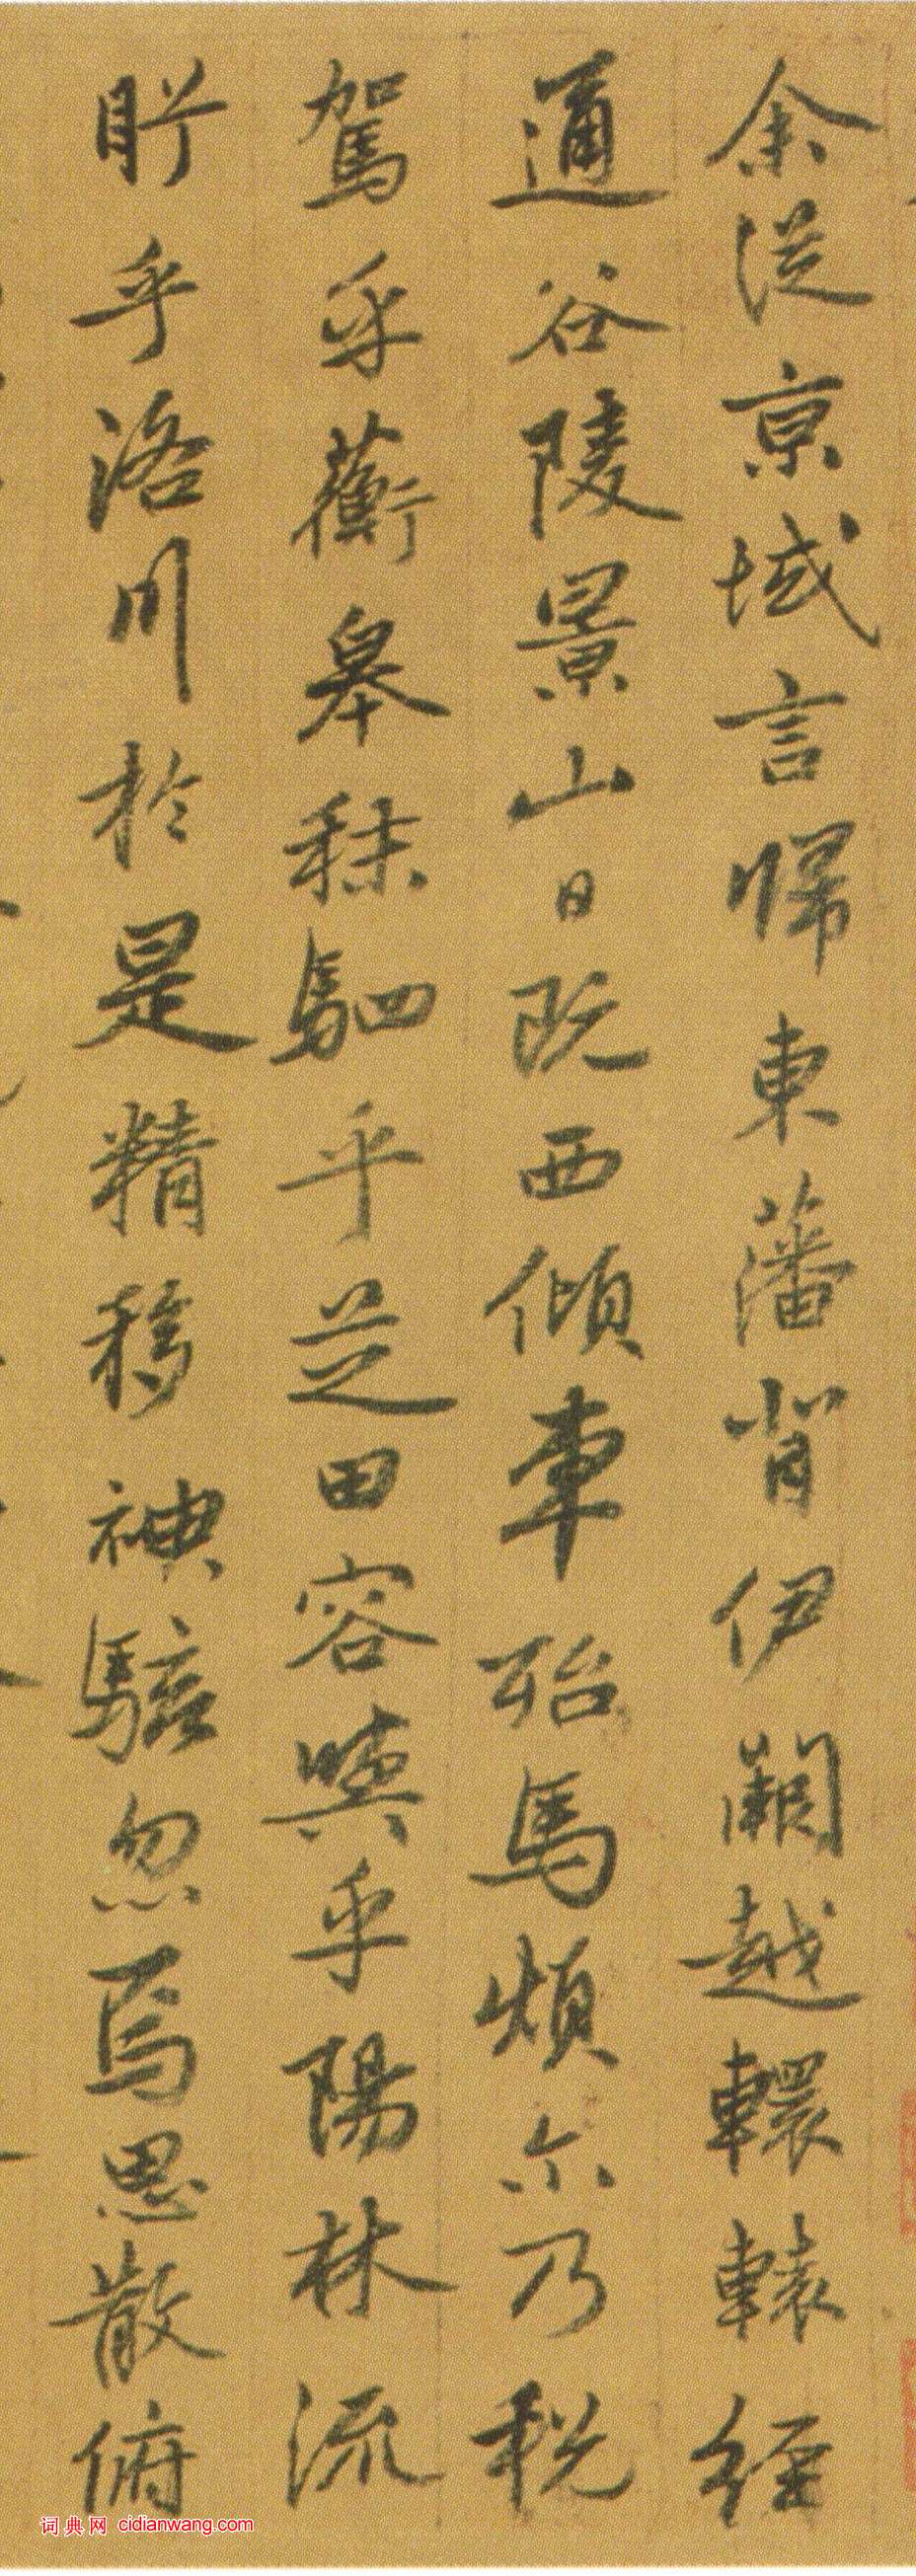 余從京域言歸東藩背伊闕越轘轅經
通谷陵景山日既西傾車殆馬煩尒乃税
駕乎蘅皋秣駟乎芝田容與乎陽林流
眄乎洛川於是精移神駭忽焉思散俯
词典网 cidianwang.com